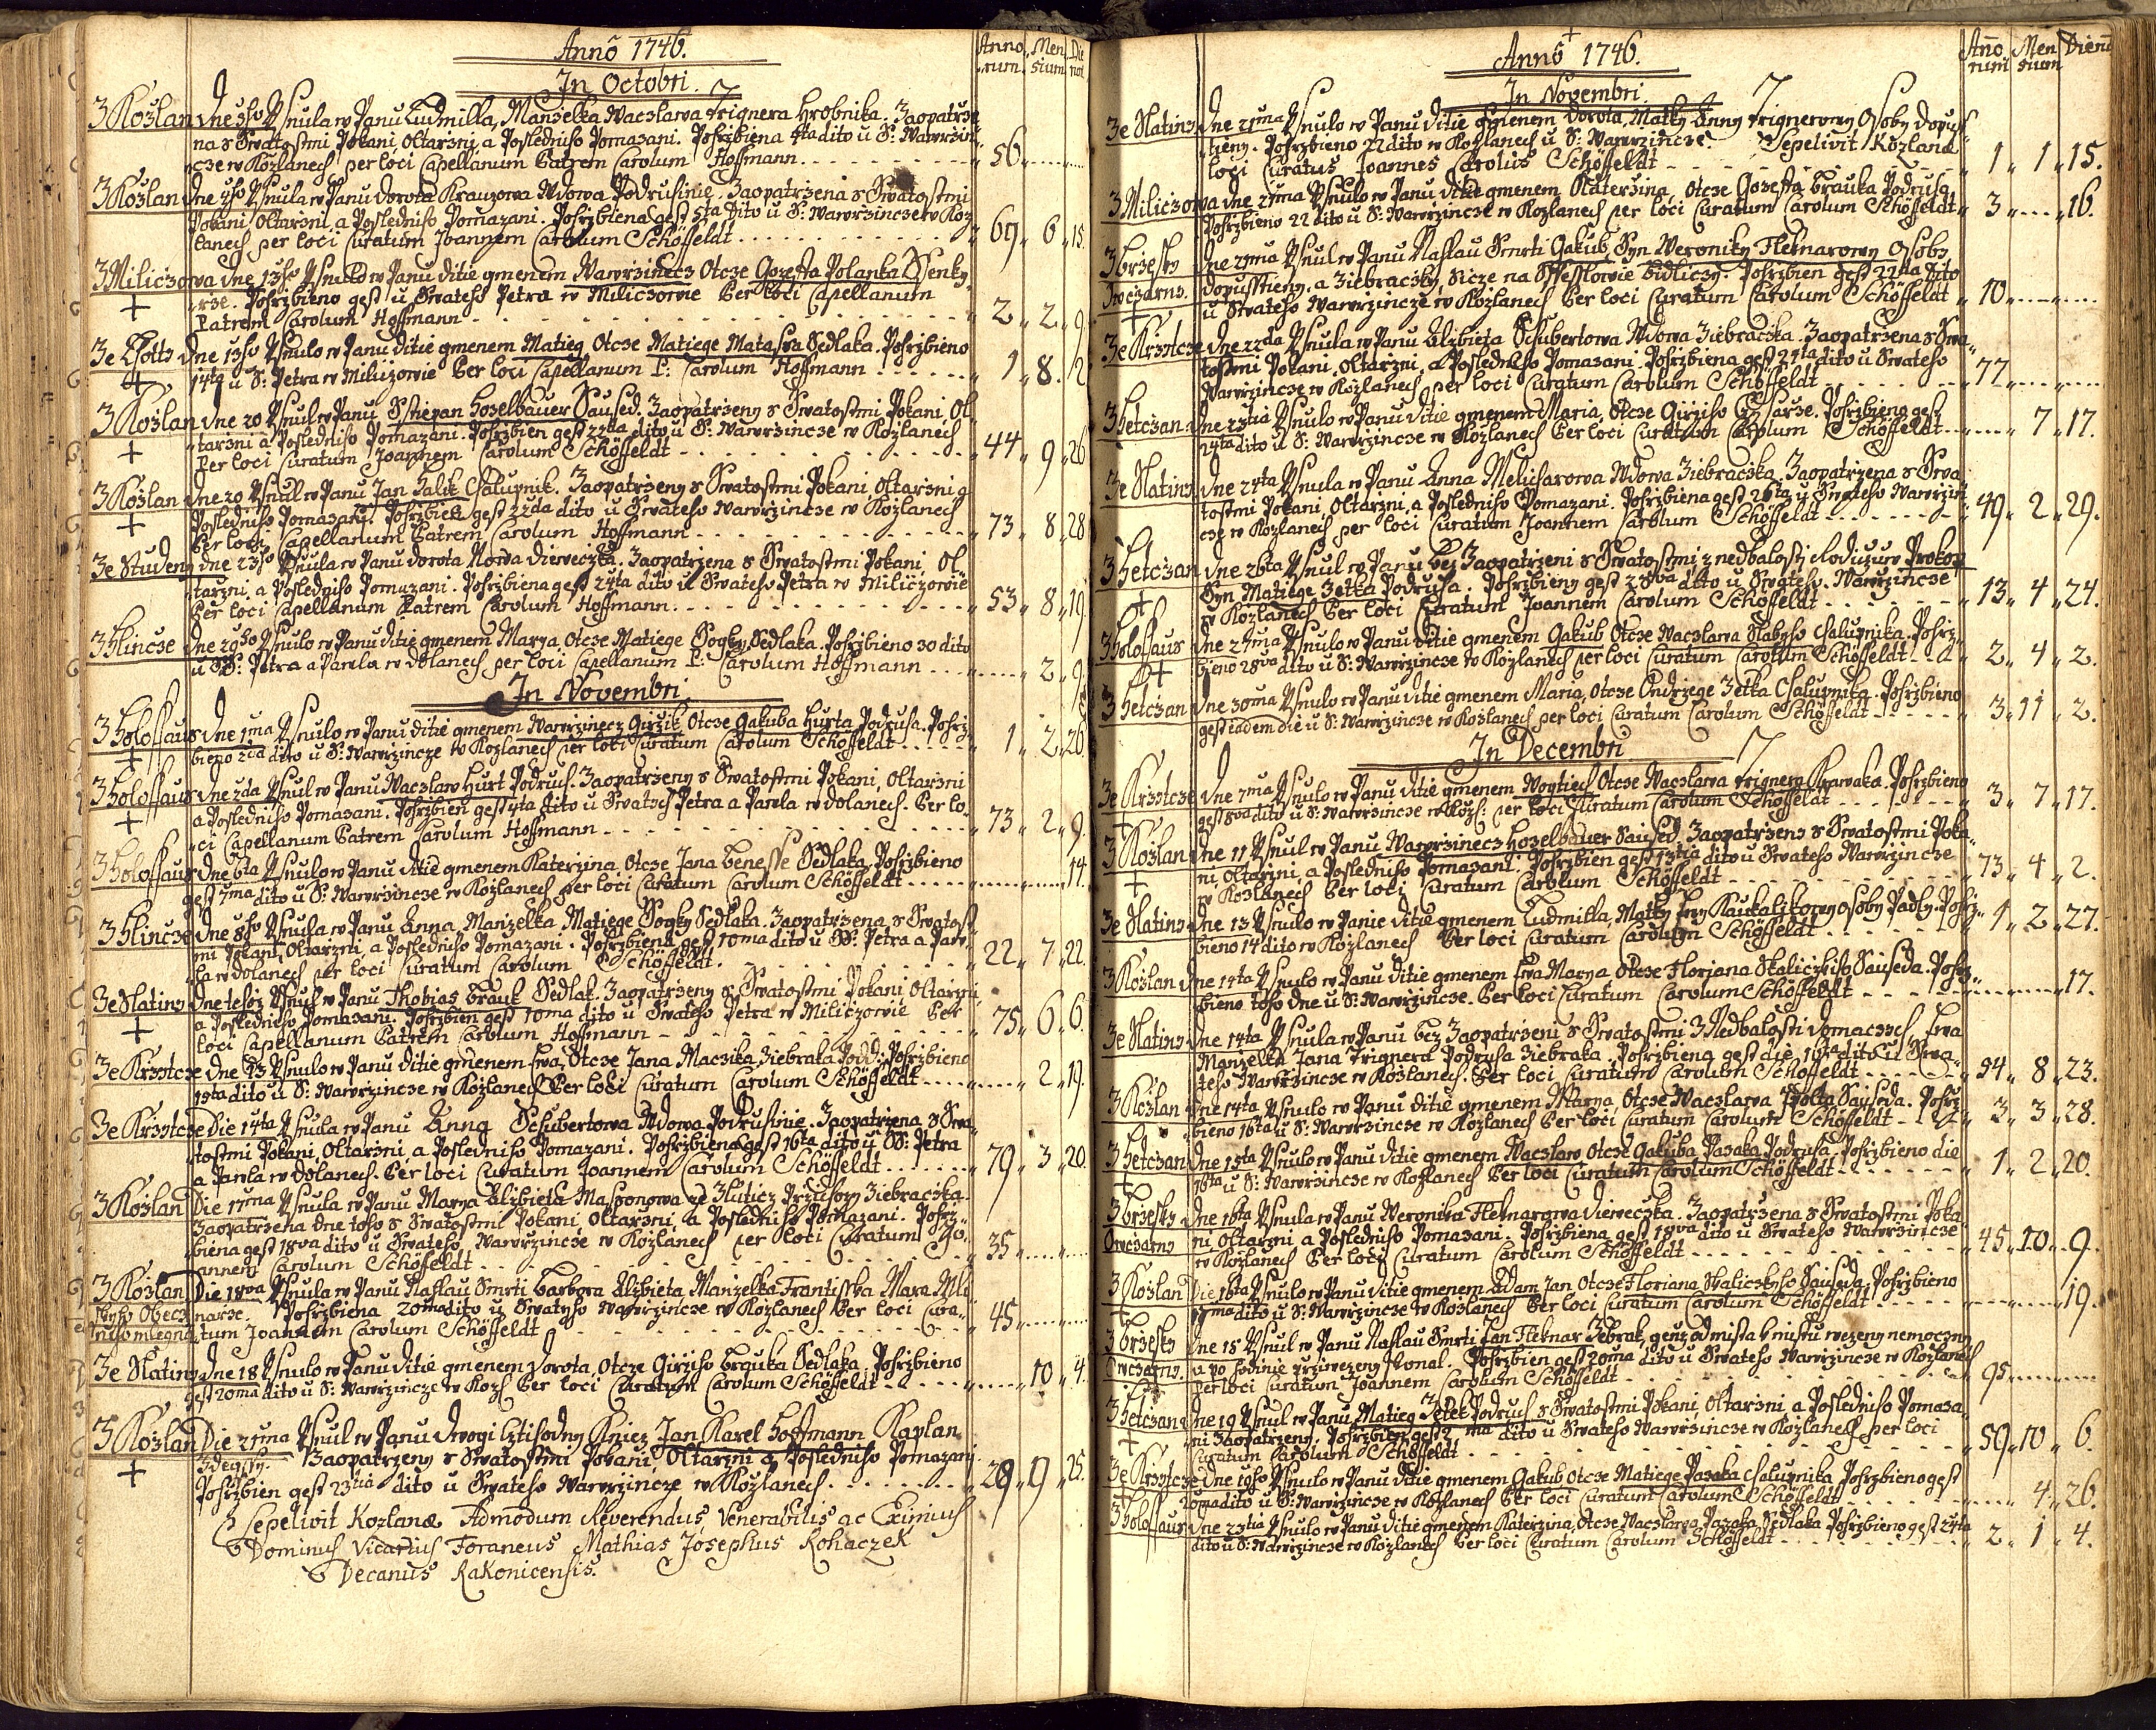 Anno 1746.
Anno rum. Men sium Die rum
In Octobri.
3 Kozlan dne 3ho Usnula w Panu Ludmilla, Manzelka Waczlawa Frignera Hrobnika. Zaopatrze
na s Swatostmi Pokani Oltarzni, a Posledniho Pomazani. Pohrzbiena 4ta dito u S: Wawrzin
cze w Kozlanech per loci Capellanum Patrem Carolum Hoffmann 56
3 Kozlan dne Usnula w Panu Dorota Krauzowa Wdowa Podrusinie. Zaopatrzena s Swatostmi
Pokani Oltarzni, a Posledniho Pomazani. Pohrzbiena gest 5ta dito u S: Wawrzincze w Koz
lanech per loci Curatum Joannem Carolum Schöffeldt 69 6 15.
3 Miliczowa dne 13ho Usnulo w Panu ditie gmenem Wawrzinecz Otcze Gozeffa Polanka Ssenky
rze. Pohrzbieno gest u Swateho Petra w Miliczowie Per loci Capellanum
+ Patrem Carolum Hoffmann 2 2 9
3e Lhotts dne 13ho Usnulo w Panu ditie gmenem Matieg Otcze Matiege Sedlaka. Pohrzbieno
+ 14ta u S: Petra w Miliczowie Per loci Capellanum P: Carolum Hoffmann 1 8. 12
3 Kozlan dne 20 Usnul w Panu Sstiepan Hozelbauer Saused. Zaopatrzeny s Swatostmi Pokani, Ol
tarzni a Posledniho Pomazani. Pohrzbien gest 22da dito u S: Wawrzincze w Kozlanech
+ Per loci Curatum Joannem Carolum Schöffeldt 44 9 26
3 Kozlan dne 20 Usnul w Panu Jan Jalik Chalupnik. Zaopatrzeny s Swatostmi Pokani Oltarzni a
+ Posledniho Pomazani. Pohrzbien gest 22da dito u Swateho Wawrzincze w Kozlanech
Per loci Capellanum Patrem Carolum Hoffmann 73 8 28
3e Studeny dne 23ho Usnula w Panu Dorota Nowa Dieweczka. Zaopatrzena s Swatostmi Pokani, Ol
tarzni, a Posledniho Pomazani. Pohrzbiena gest 24ta dito u Swateho Petra w Miliczowie
Per loci Capellanum Patrem Carolum Hoffmann 53 8 19
3 Hlincze dne 29ho Usnulo w Panu ditie gmenem Marya, Otcze Matiege Sogky Sedlaka. Pohrzbieno 30 dito
u SS: Petra a Pawla w Dolanech per loci Capellanum P: Carolum Hoffmann 2 9
In Novembri
3 Holossaus dne 1ma Usnulo w Panu ditie gmenem Wawrzinecz Girzik, Otcze Gakuba Hurta Podruha. Pohrz
+ bieno 2da dito u S: Wawrzincze w Kozlanech per loci Curatum Carolum Schöffeldt 1 2 26
3 Holossaus dne 2da Usnul w Panu Waczlaw Hurt Podruh. Zaopatrzeny s Swatostmi Pokani, Oltarzni
+ a Posledniho Pomazani. Pohrzbien gest 4ta dito u Swatych Petra a Pawla w Dolanech. Per lo
ci Capellanum Patrem Carolum Hoffmann 73 2 9
3 Holossaus dne 6ta Usnulo w Panu ditie gmenem Katerzina, Otcze Jana Benesse Sedlaka, Pohrzbieno
gest 7ma dito u S: Wawrzincze w Kozlanech per loci Curatum Carolum Schöffeldt 14.
3 Hlincze dne 8ho Usnula w Panu Anna, Manzelka Matiege Sogky Sedlaka. Zaopatrzena s Swatost
mi Pokani Oltarzni, a Posledniho Pomazani. Pohrzbiena gest 10ma dito u SS: Petra a Paw
la w Dolanech per loci Curatum Carolum Schöffeldt. 22 7 22
3e Slatins dne tehoz Usnul w Panu Thobias Brauk Sedlak. Zaopatrzeny s Swatostmi Pokani, Oltarzni
+ a Posledniho Pomazani. Pohrzbien gest 10ma dito u Swateho Petra w Miliczowie Per
loci Capellanum Patrem Carolum Hoffmann 75 6 6
3e Krzstcze Dne 13 Usnulo w Panu ditie gmenem Ewa, Otcze Jana Maczika Ziebraka Podd: Pohrzbieno
15ta dito u S: Wawrzincze w Kozlanech Per loci Curatum Carolum Schöffeldt 2 19
3e Krzstcze Die 14ta Usnula w Panu Anna Schubertowa Wdowa Podrusinie. Zaopatrzena s Swa
tostmi Pokani, Oltarzni, a Posledniho Pomazani. Pohrzbiena gest 16ta dito u SS: Petra
a Pawla w Dolanech. Per loci Curatum Joannem Carolum Schöffeldt 79 3 20.
3 Kozlan Die 17ma Usnula w Panu Marya Alzbieta ze Ziebraczka.
Zaopatrzena dne toho s Swatostmi Pokani, Oltarzni, a Posledniho Pomazani. Pohrz
biena gest 18va dito u Swateho Wawrzincze w Kozlanech per loci Curatum Jo
annem Carolum Schöffeldt 35
3 Kozlan Die 18va Usnula w Panu Naslau Smrti Barbora Alzbieta Manzelka Frantisska Mli
narze. Pohrzbiena 20ma dito u Swatyho Wawrzincze w Kozlanech Per loci Cura
tum Joannem Carolum Schöffeldt 45
3e Slatins Dne 18 Usnulo w Panu ditie gmenem Dorota, Otcze Girziho Brauka Sedlaka. Pohrzbieno
gest 20ma dito u S: Wawrzincze w Kozl Per loci Curatum Carolum Schöffeldt 10 4
3 Kozlan Die 21ma Usnul w Panu Dwogi Cztihodny Kniez Jan Karel Hoffmann Kaplan
Zdegssy. Zaopatrzeny s Swatostmi Pokani, Oltarzni a Posledniho Pomazani
+ Pohrzbien gest 23tia dito u Swateho Wawrzincze w Kozlanech. 28 9 25.
Sepelivit Kozlanæ Admodum Reverendus Venerabilis ac Eximius
Dominus Vicarius Foraneus Mathias Josephus Rohaczek
Decanus Rakonicensis.
Anno 1746.
Anno rum Men sium Dieru
In Novembri.
3e Slatins Dne 21ma Usnulo w Panu ditie gmenem Dorota, Matky Anny Frignerowy Osoby dopus
tieny. Pohrzbieno 22 dito w Kozlanech u S: Wawrzincze. Sepelivit Kozlanæ
loci Curatus Joannes Carolus Schöffeldt 1 1 15.
3 Miliczowa dne 21ma Usnulo w Panu ditie gmenem Katerzina, Otcze Gozeffa Brauka Podruha
Pohrzbieno 22 dito u S: Wawrzincze w Kozlanech per loci Curatum Carolum Schöffeldt 3 16.
3 Brzesky Dne 21ma Usnul w Panu Naslau Smrti Gakub Syn Weroniky Fleknarowy Osoby
Owczarns. dopusstieny, a Ziebraczky, Pohrzbien gest 22da dito
+ u Swateho Wawrzincze w Kozlanech Per loci Curatum Carolum Schöffeldt 10
3e Krzstcze dne 22da Usnula w Panu Alzbieta Schubertowa Wdowa Ziebraczka. Zaopatrzena s Swa
tostmi Pokani, Oltarzni, a Posledniho Pomazani. Pohrzbiena gest 24ta dito u Swateho
Wawrzincze w Kozlanech per loci Curatum Carolum Schöffeldt 77
3 Hetczan Dne 23tia Usnulo w Panu ditie gmenem Maria, Otcze Girziho Pohrzbieno gest
24ta dito u S: Wawrzincze w Kozlanech Per loci Curatum Carolum Schöffeldt 7 17.
3e Slatins Dne 24ta Usnula w Panu Anna Melicharowa Wdowa Ziebraczka. Zaopatrzena s Swa
tostmi Pokani, Oltarzni, a Posledniho Pomazani. Pohrzbiena gest 26ta u Swateho Wawrzin
cze w Kozlanech per loci Curatum Joannem Carolum Schöffeldt 49 2 29.
3 Hetczan Dne 26ta Usnul w Panu bez Zaopatrzeni s Swatostmi z nedbalosti Rodiczuw Prokop
Syn Matiege Zetka Podruha. Pohrzbieny gest 28va dito u Swateho Wawrzincze
+ w Kozlanech Per loci Curatum Joannem Carolum Schöffeldt 13 4 24.
3 Holossaus Dne 27ma Usnulo w Panu ditie gmenem Gakub Otcze Waczlawa Slabyho Chalupnika. Pohrz
+ bieno 28va dito u S: Wawrzincze w Kozlanech per loci Curatum Carolum Schöffeldt 2 4 2.
3 Hetczan Dne 30ma Usnulo w Panu ditie gmenem Maria, Otcze Ondrzege Zetka Chalupnika. Pohrzbieno
gest eadem die u S: Wawrzincze w Kozlanech per loci Curatum Carolum Schöffeldt 3 11 2.
In Decembri
3e Krzstcze Dne 7ma Usnulo w Panu ditie gmenem Woytiech Otcze Waczlawa Frignera Krawaka. Pohrzbieno
+ gest 8va dito u S: Wawrzincze w Kozl: per loci Curatum Carolum Schöffeldt 3 7 17.
3 Kozlan Dne 11 Usnul w Panu Wawrzinecz Hozelbauer Saused, Zaopatrzeny s Swatostmi Poka
ni, Oltarzni, a Posledniho Pomazani. Pohrzbien gest 13tia dito u Swateho Wawrzincze
+ w Kozlanech Per loci Curatum Carolum Schöffeldt 73 4 2.
3e Slatins Dne 13 Usnulo w Panie ditie gmenem Ludmilla, Matky Ewy Kaukalikowy osoby Padly. Pohrz
bieno 14 dito w Kozlanech Per loci Curatum Carolum Schöffeldt 1 2 27.
3 Kozlan Dne 14ta Usnulo w Panu ditie gmenem Ewa Marya Otcze Floriana Skaliczkiho Sauseda. Pohrz
bieno toho dne u S: Wawrzincze. Per loci Curatum Carolum Schöffeldt 17.
3e Slatins Dne 14ta Usnula w Panu bez Zaopatrzeni s Swatostmi Z Nedbalosti domaczych Ewa
Manzelka Jana Frignera Podruha Ziebraka. Pohrzbiena gest die 16ta dito u Swa
teho Wawrzincze w Kozlanech. Per loci Curatum Carolum Schöffeldt 54 8 23.
3 Kozlan Dne 14ta Usnulo w Panu ditie gmenem Marya, Otcze Waczlawa Sauseda. Pohrz
bieno 16ta u S: Wawrzincze w Kozlanech Per loci Curatum Carolum Schöffeldt 3 3 28.
3 Hetczan Dne 15ta Usnulo w Panu ditie gmenem Waczlaw Otcze Gakuba Pazaka Podruha. Pohrzbieno die
+ 16ta u S: Wawrzincze w Kozlanech Per loci Curatum Carolum Schöffeldt 1 2 20.
3 Brzesky Dne 16ta Usnula w Panu Weronika Fleknarowa Dieweczka. Zaopatrzena s Swatostmi Poka
Owczarns ni, Oltarzni a Posledniho Pomazani. Pohrzbiena gest 18va dito u Swateho Wawrzincze
w Kozlanech Per loci Curatum Carolum Schöffeldt 45 10 9.
3 Kozlan Die 16ta Usnulo w Panu ditie gmenem Adam Jan Otcze Floriana Skaliczkyho Sauseda. Pohrzbieno
+ 17ma dito u S: Wawrzincze w Kozlanech Per loci Curatum Carolum Schöffeldt 19.
3 Brzesky Dne 18 Usnul w Panu Naslau Smrti Jan Fleknar Zebrak, genz od mista k mistu wezeny nemoczny
Owczarns. a po hodinie przywezeny skonal. Pohrzbien gest 20ma dito u Swateho Wawrzincze w Kozlanech
Per loci Curatum Joannem Carolum Schöffeldt 95
3 Hetczan Dne 19 Usnul w Panu Matieg Zetek Podruh s Swatostmi Pokani, Oltarzni, a Posledniho Pomaza
+ ni Zaopatrzeny. Pohrzbien gest 2 ma dito u Swateho Wawrzincze w Kozlanech per loci
Curatum Carolum Schöffeldt 59 10 6.
3e Krzstcze Dne 19ho Usnulo w Panu ditie gmenem Gakub Otcze Matiege Pazaka Chalupnika Pohrzbieno gest
+ 20ma dito u S: Wawrzincze w Kozlanech Per loci Curatum Carolum Schöffeldt 4 26.
3 Holossaus Dne 23tia Usnulo w Panu ditie gmenem Katerzina, Otcze Waczlawa Pazaka Sedlaka Pohrzbieno gest 24ta
dito u S: Wawrzincze w Kozlanech Per loci Curatum Carolum Schöffeldt 2 1 4.